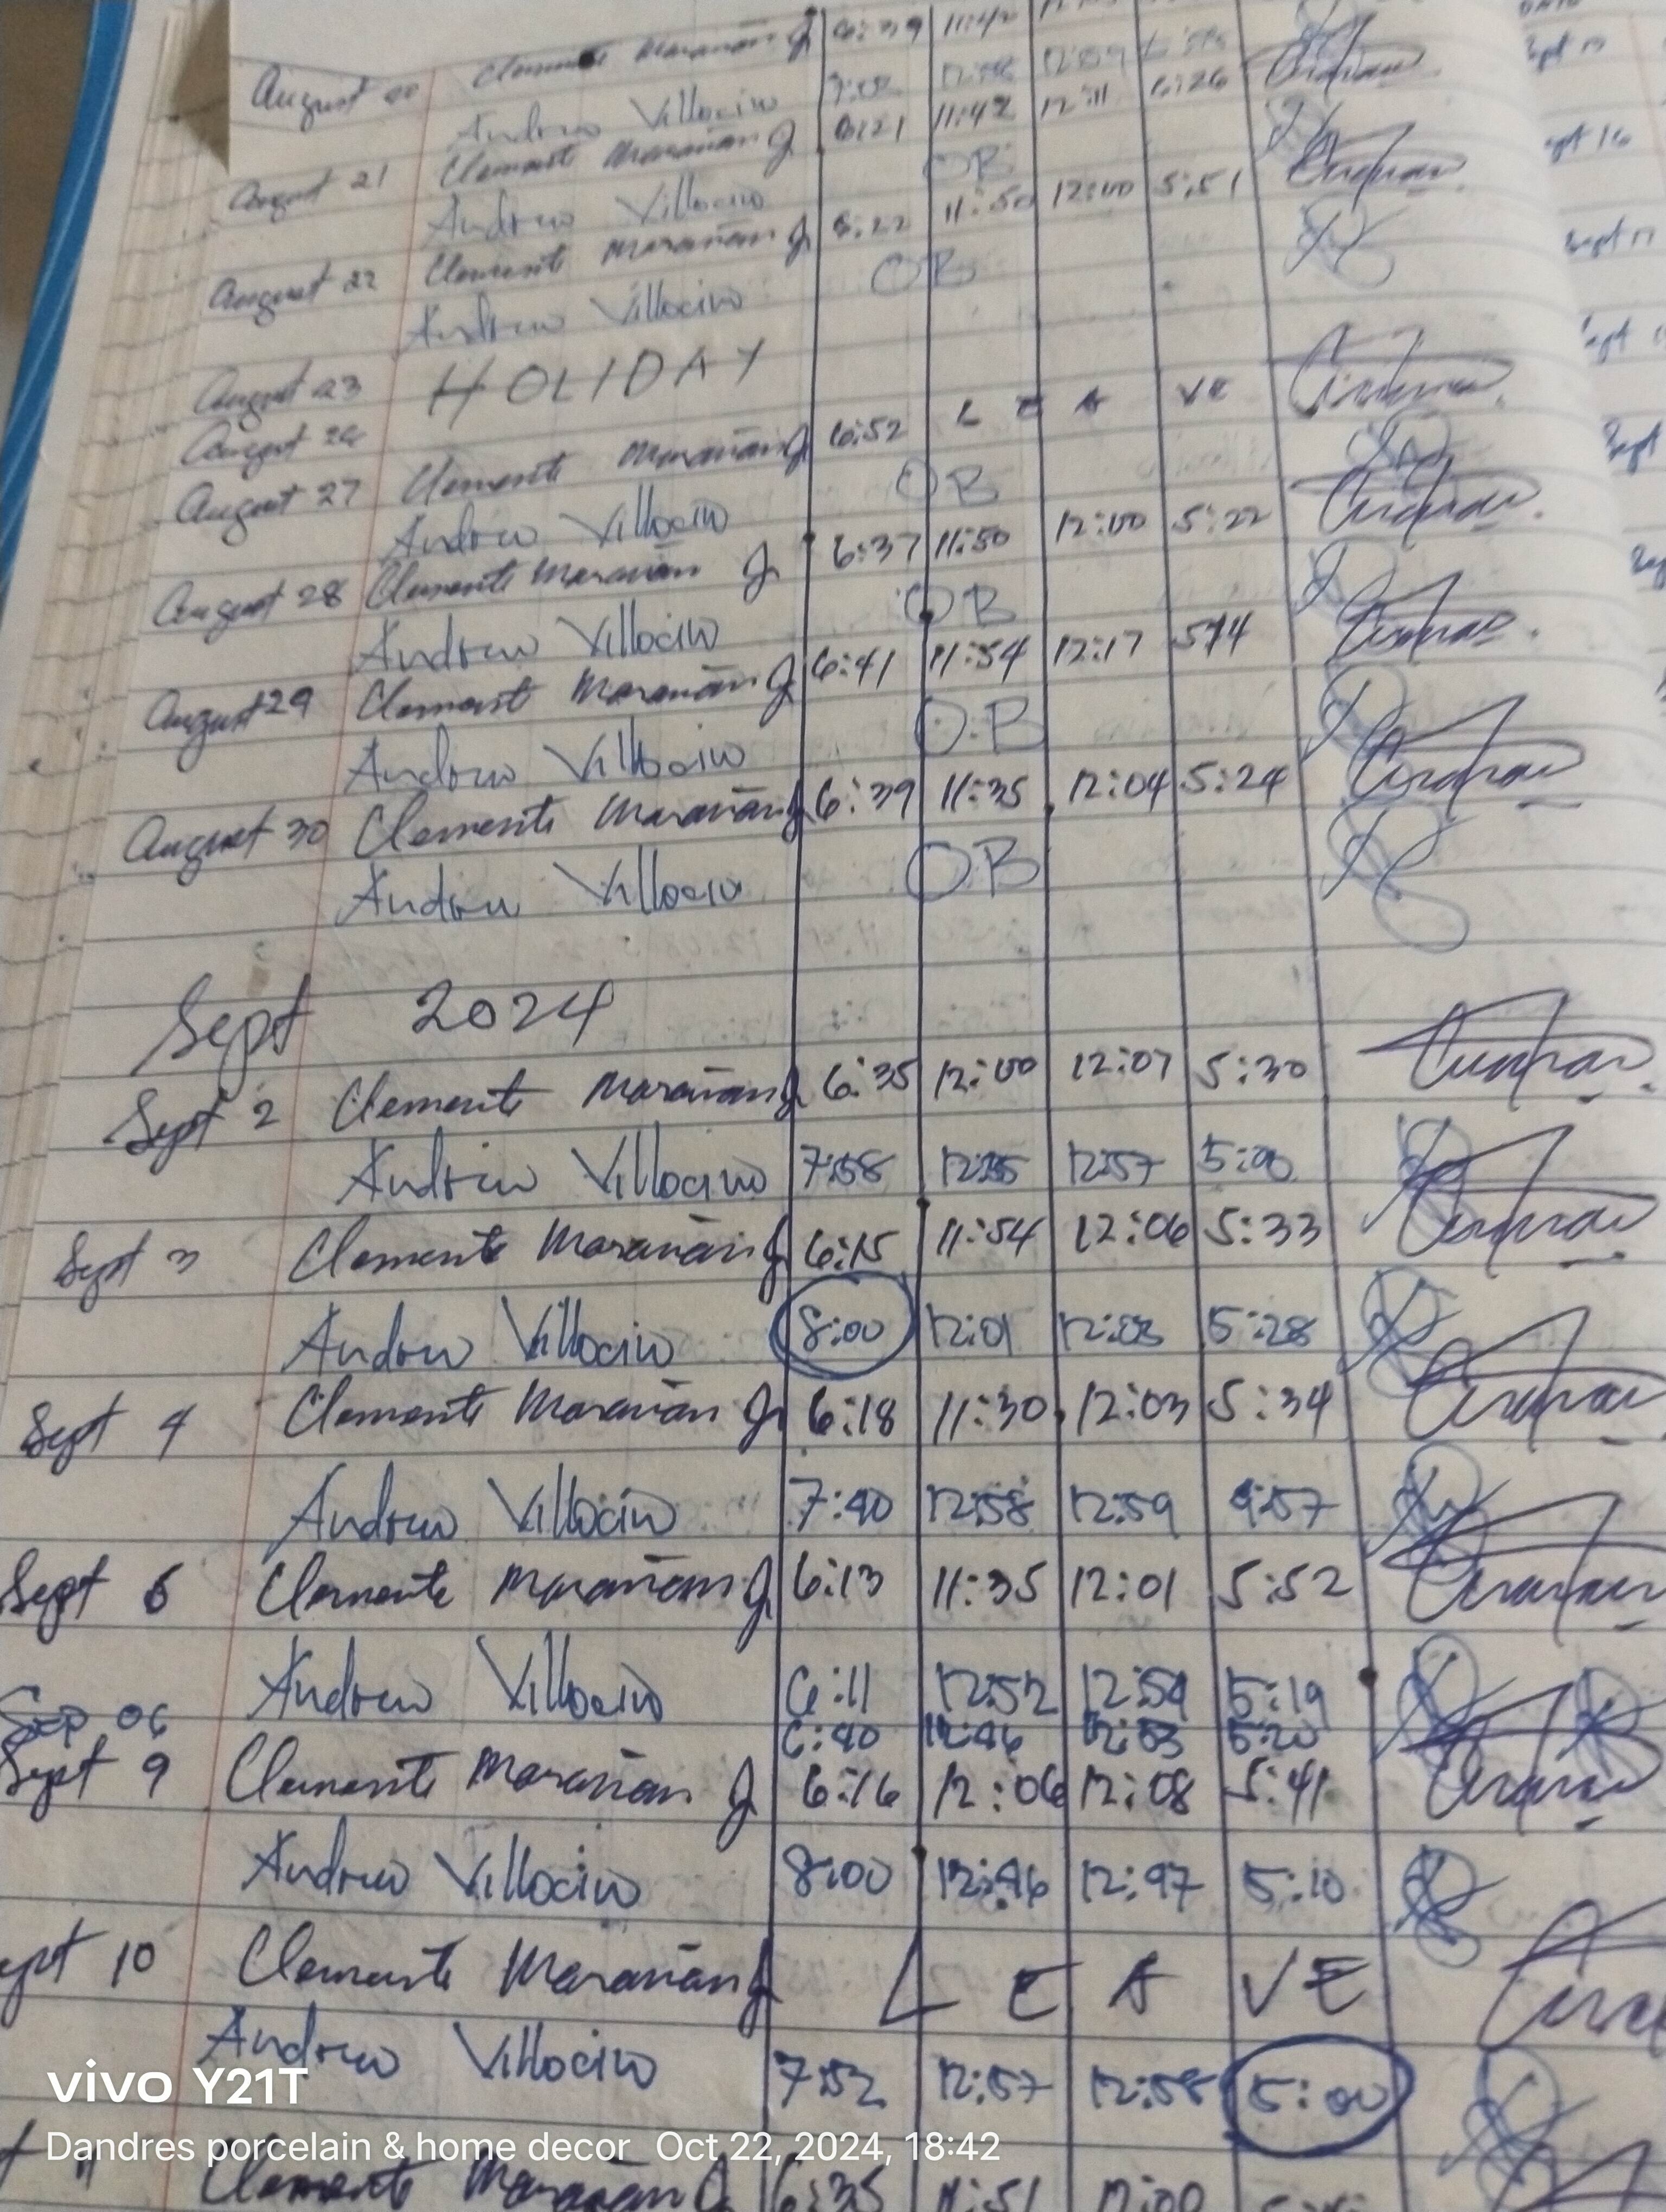 August 20 Clemente Marañan Jr 6:39 11:42
Andrew Villocino 7:02 12:58 12:59
August 21 Clemente Marañan Jr 6:21 11:42 12:11 6:26
Andrew Villocino OB
August 22 Clemente Marañan Jr 6:22 11:50 12:00 5:51
Andrew Villocino OB
August 23 HOLIDAY
August 26
August 27 Clemente Marañan Jr 6:52 L E A VE
Andrew Villocino OB
August 28 Clemente Marañan Jr 6:37 11:50 12:00 5:22
Andrew Villocino OB
August 29 Clemente Marañan Jr 6:41 11:54 12:17 5:14
Andrew Villocino OB
August 30 Clemente Marañan Jr 6:39 11:35 12:04 5:24
Andrew Villocino OB
Sept 2024
Sept 2 Clemente Marañan Jr 6:35 12:00 12:07 5:30
Andrew Villocino 7:58 12:57 5:00
Sept 3 Clemente Marañan Jr 6:15 11:54 12:06 5:33
Andrew Villocino 8:00 12:01 12:03 5:28
Sept 4 Clemente Marañan Jr 6:18 11:30 12:03 5:34
Andrew Villocino 7:40 12:58 12:59 4:57
Sept 5 Clemente Marañan Jr 6:13 11:35 12:01 5:52
Andrew Villocino 6:11 12:52 12:54 5:19
Sep 06 6:40 12:46 12:53 5:20
Sept 9 Clemente Marañan Jr 6:16 12:06 12:08 5:41
Andrew Villocino 8:00 12:46 12:47 5:10
Sept 10 Clemente Marañan Jr L E A VE
Andrew Villocino 7:52 12:57 12:58 5:00
Clemente Marañan Jr 6:35 11:51 12:00
vivo Y21T
Dandres porcelain & home decor Oct 22, 2024, 18:42